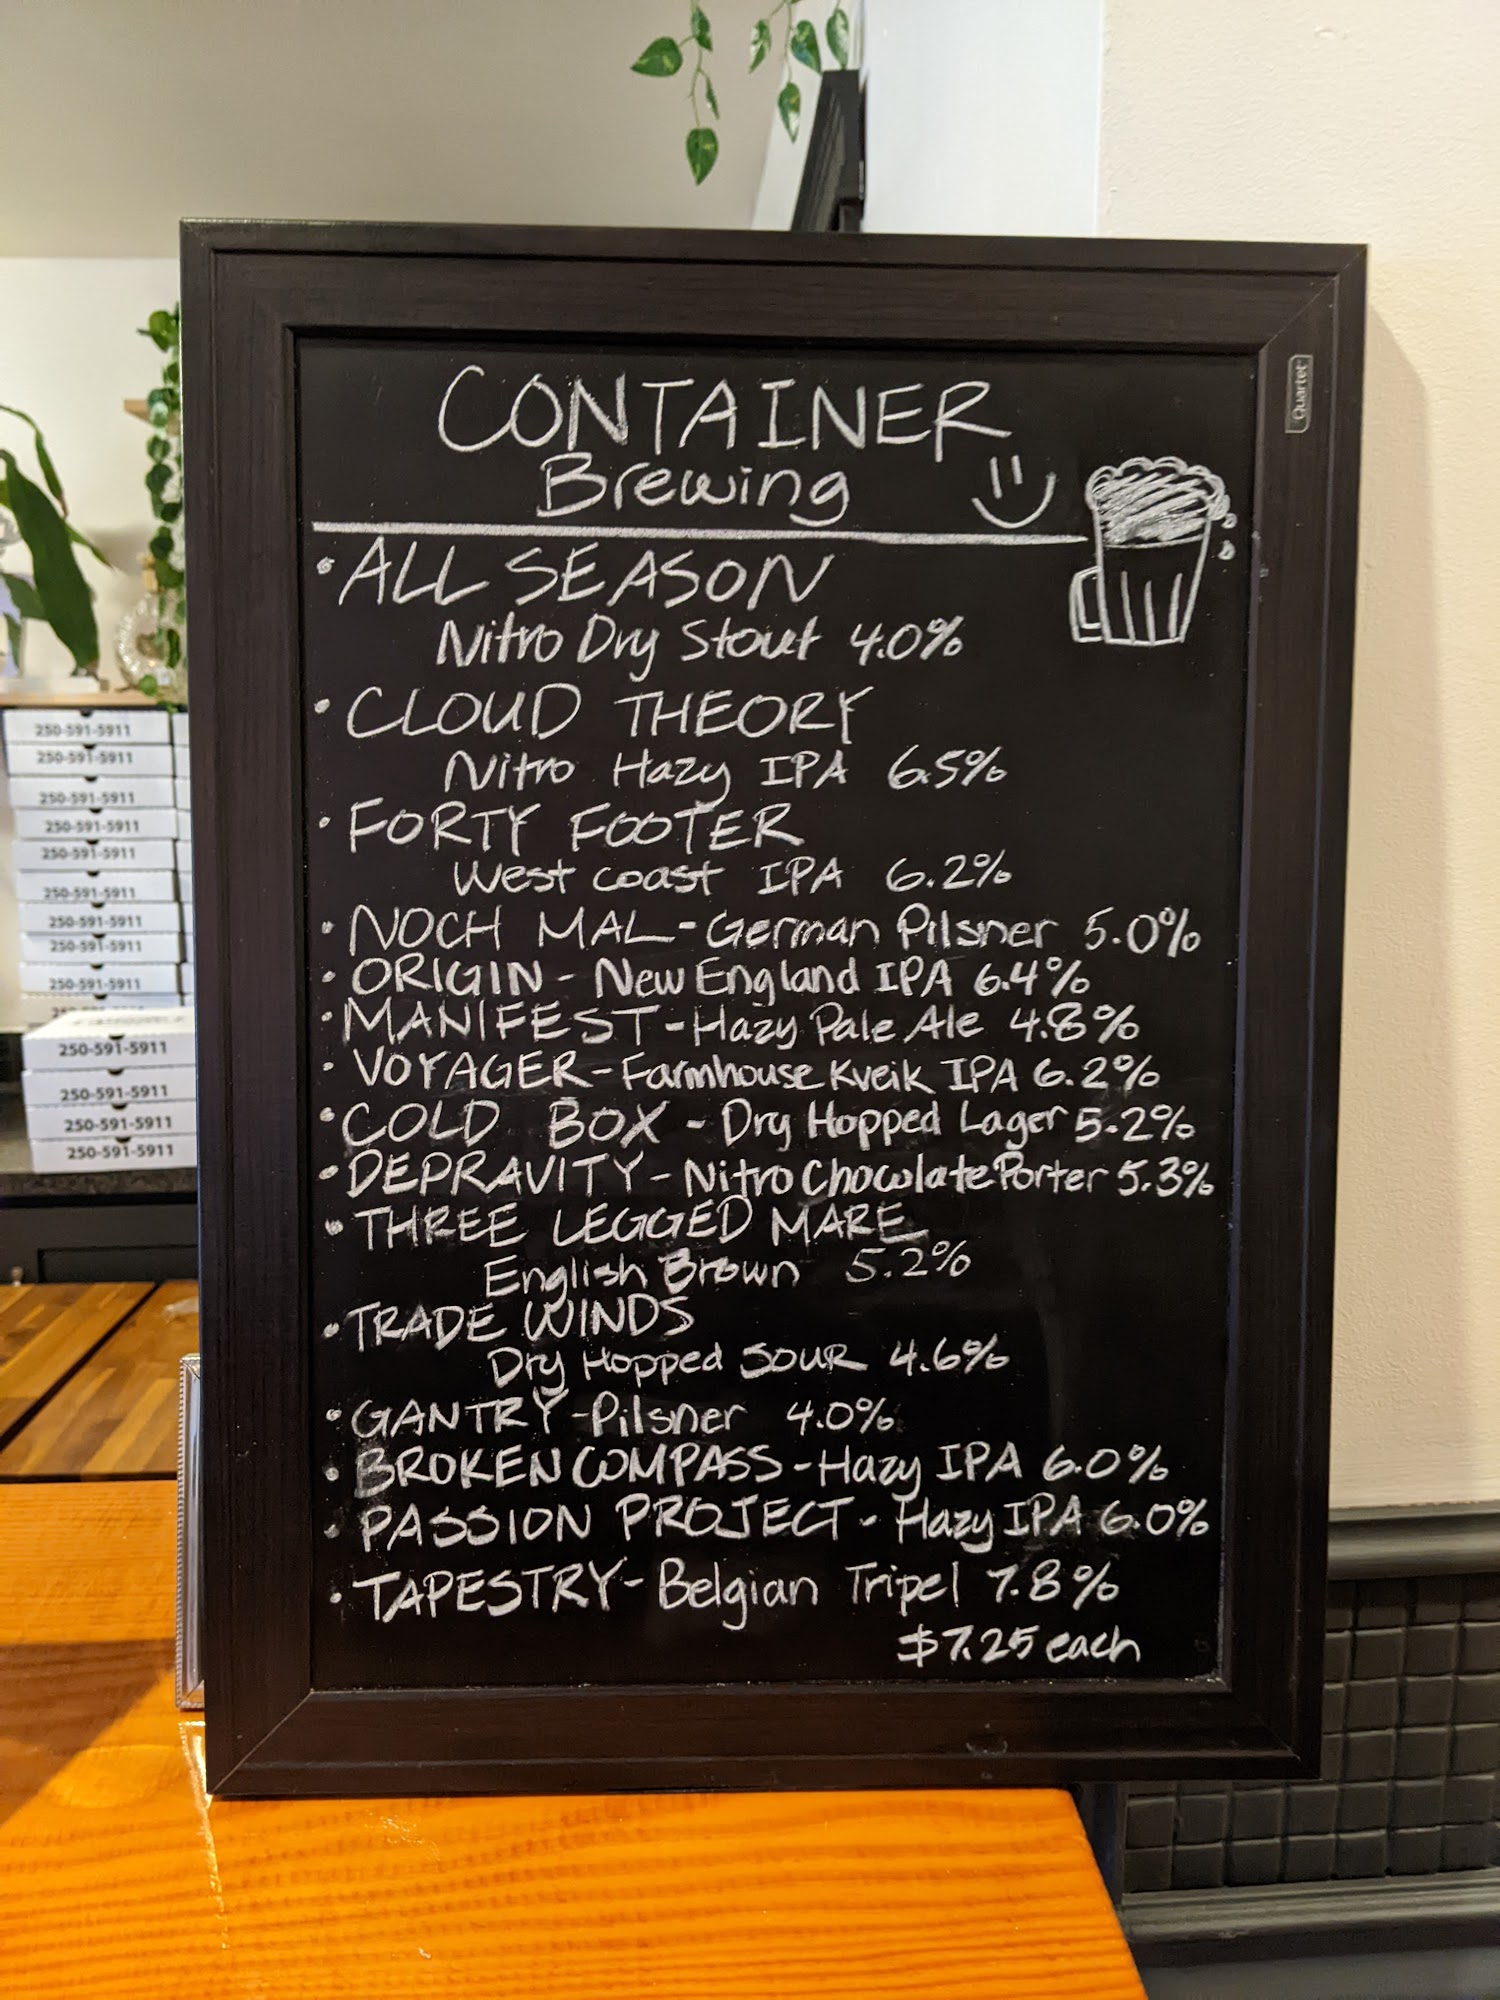 CONTAINER
Brewing
Quartet
• ALL SEASON
Nitro Dry Stout 4.0%
• CLOUD THEORY
Nitro Hazy IPA 6.5%
• FORTY FOOTER
West coast IPA 6.2%
• NOCH MAL - German Pilsner 5.0%
• ORIGIN - New England IPA 6.4%
• MANIFEST - Hazy Pale Ale 4.8%
• VOYAGER - Farmhouse Kveik IPA 6.2%
• COLD BOX - Dry Hopped Lager 5.2%
• DEPRAVITY - Nitro Chocolate Porter 5.3%
• THREE LEGGED MARE
English Brown 5.2%
• TRADE WINDS
Dry Hopped SOUR 4.6%
• GANTRY - Pilsner 4.0%
• BROKEN COMPASS - Hazy IPA 6.0%
• PASSION PROJECT - Hazy IPA 6.0%
• TAPESTRY - Belgian Tripel 7.8%
$7.25 each
250-591-5911
250-591-5911
250-591-5911
250-591-5911
250-591-5911
250-591-5911
250-591-5911
250-591-5911
250-591-5911
250-591-5911
250-591-5911
250-591-5911
250-591-5911